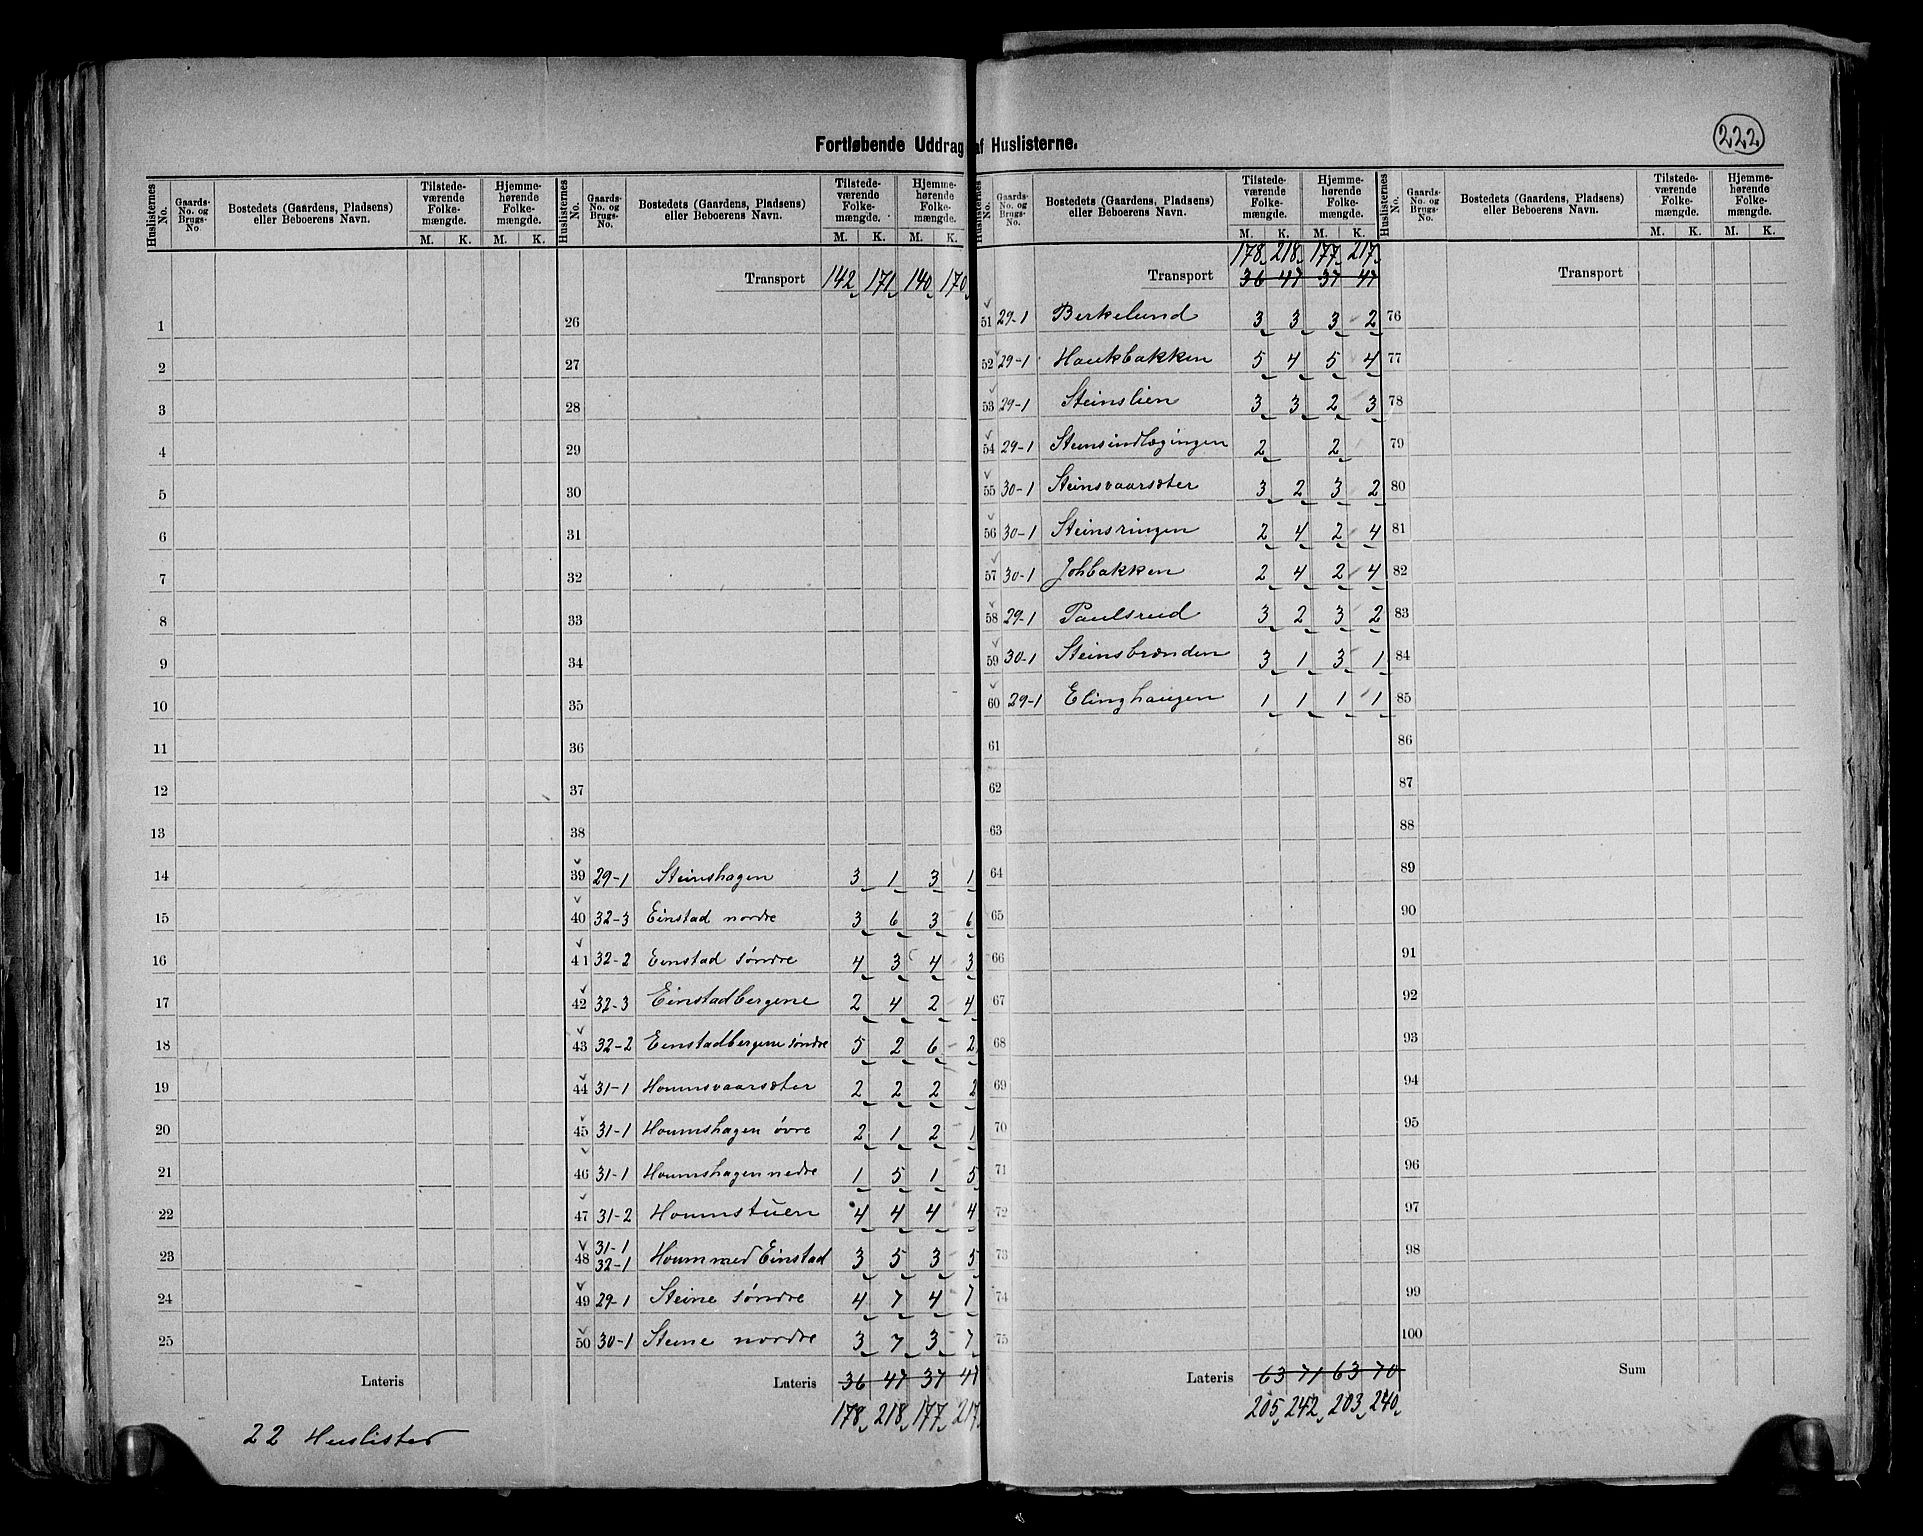 222
Fortløbende Uddrag af Huslisterne.
Huslisternes No. | Gaards-No. og Brugs-No. | Bostedets (Gaardens, Pladsens) eller Beboerens Navn. | Tilstedeværende Folkemængde. M. K. | Hjemmehørende Folkemængde. M. K.
1
2
3
4
5
6
7
8
9
10
11
12
13
14
15
16
17
18
19
20
21
22
23
24
25
Lateris
22 Huslister
Huslisternes No. | Gaards-No. og Brugs-No. | Bostedets (Gaardens, Pladsens) eller Beboerens Navn. | Tilstedeværende Folkemængde. M. K. | Hjemmehørende Folkemængde. M. K.
Transport 142 171 140 170
26
27
28
29
30
31
32
33
34
35
36
37
38
39 29-1 Steinshagen 3 1 3 1
40 32-3 Einstad nordre 3 6 3 6
41 32-2 Einstad søndre 4 3 4 3
42 32-3 Einstadbergene 2 4 2 4
43 32-2 Einstadbergene søndre 5 2 6 2
44 31-1 Hounsvaarsæter 2 2 2 2
45 31-1 Hounshagen øvre 2 1 2 1
46 31-1 Hounshagen nedre 1 5 1 5
47 31-2 Hounstuen 4 4 4 4
48 31-1 32-1 Houm med Einstad 3 5 3 5
49 29-1 Steine søndre 4 7 4 7
50 30-1 Steine nordre 3 7 3 7
Lateris 36 47 37 47
178 218 177 217
Huslisternes No. | Gaards-No. og Brugs-No. | Bostedets (Gaardens, Pladsens) eller Beboerens Navn. | Tilstedeværende Folkemængde. M. K. | Hjemmehørende Folkemængde. M. K.
178 218 177 217
Transport 36 47 37 47
51 29-1 Berkelund 3 3 3 2
52 29-1 Haukbakken 5 4 5 4
53 29-1 Steinslien 3 3 2 3
54 29-1 Steinsindlægingen 2 2
55 30-1 Steinsvaarsæter 3 2 3 2
56 30-1 Steinsringen 2 4 2 4
57 30-1 Johbakken 2 4 2 4
58 29-1 Paulsrud 3 2 3 2
59 30-1 Steinsbrænden 3 1 3 1
60 29-1 Elinghaugen 1 1 1 1
61
62
63
64
65
66
67
68
69
70
71
72
73
74
75
Lateris 63 71 63 70
205 242 203 240
Huslisternes No. | Gaards-No. og Brugs-No. | Bostedets (Gaardens, Pladsens) eller Beboerens Navn. | Tilstedeværende Folkemængde. M. K. | Hjemmehørende Folkemængde. M. K.
Transport
76
77
78
79
80
81
82
83
84
85
86
87
88
89
90
91
92
93
94
95
96
97
98
99
100
Sum